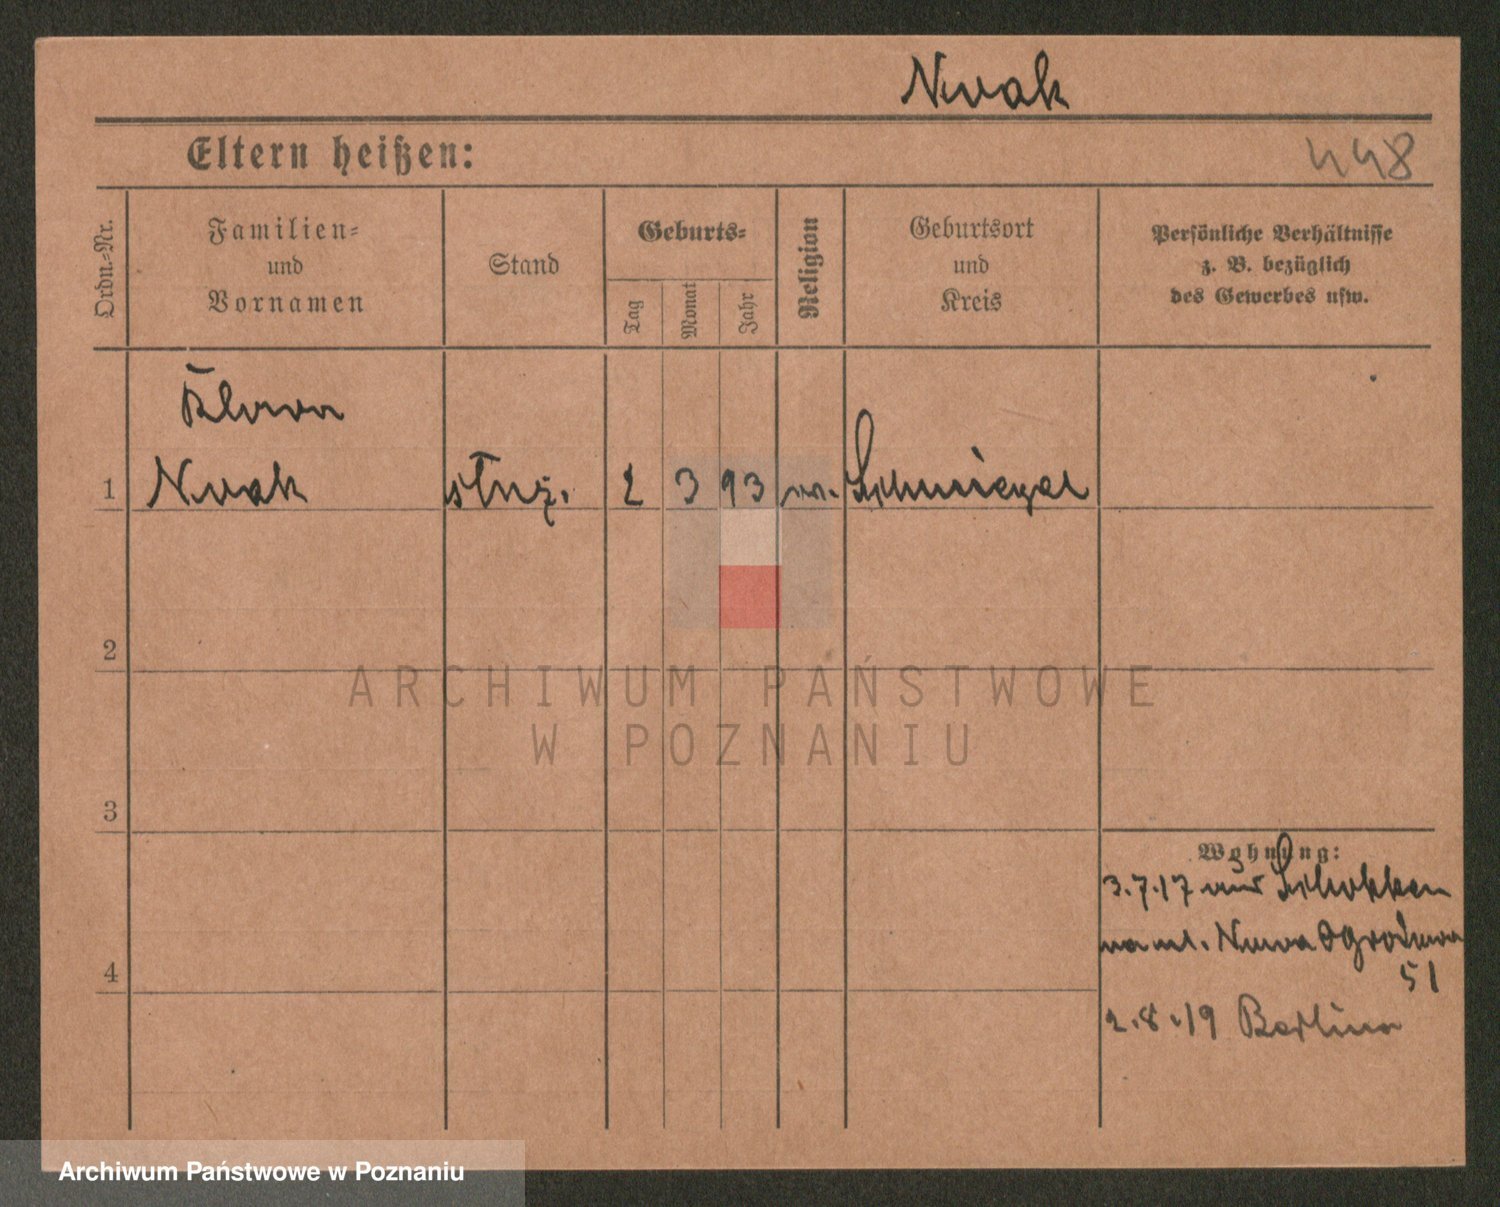 Nowak
Eltern heißen:
448
Ordn.-Nr.
Familien-
und
Vornamen
Stand
Geburts-
Tag
Monat
Jahr
Religion
Geburtsort
und
Kreis
Persönliche Verhältnisse
z. B. bezüglich
des Gewerbes usw.
Klara
1 Nowak 2 3 93 Schmiegel
2
3
4
Wohnung:
3.7.17 Schokken
51
2.8.19
ARCHIWUM PAŃSTWOWE
W POZNANIU
Archiwum Państwowe w Poznaniu